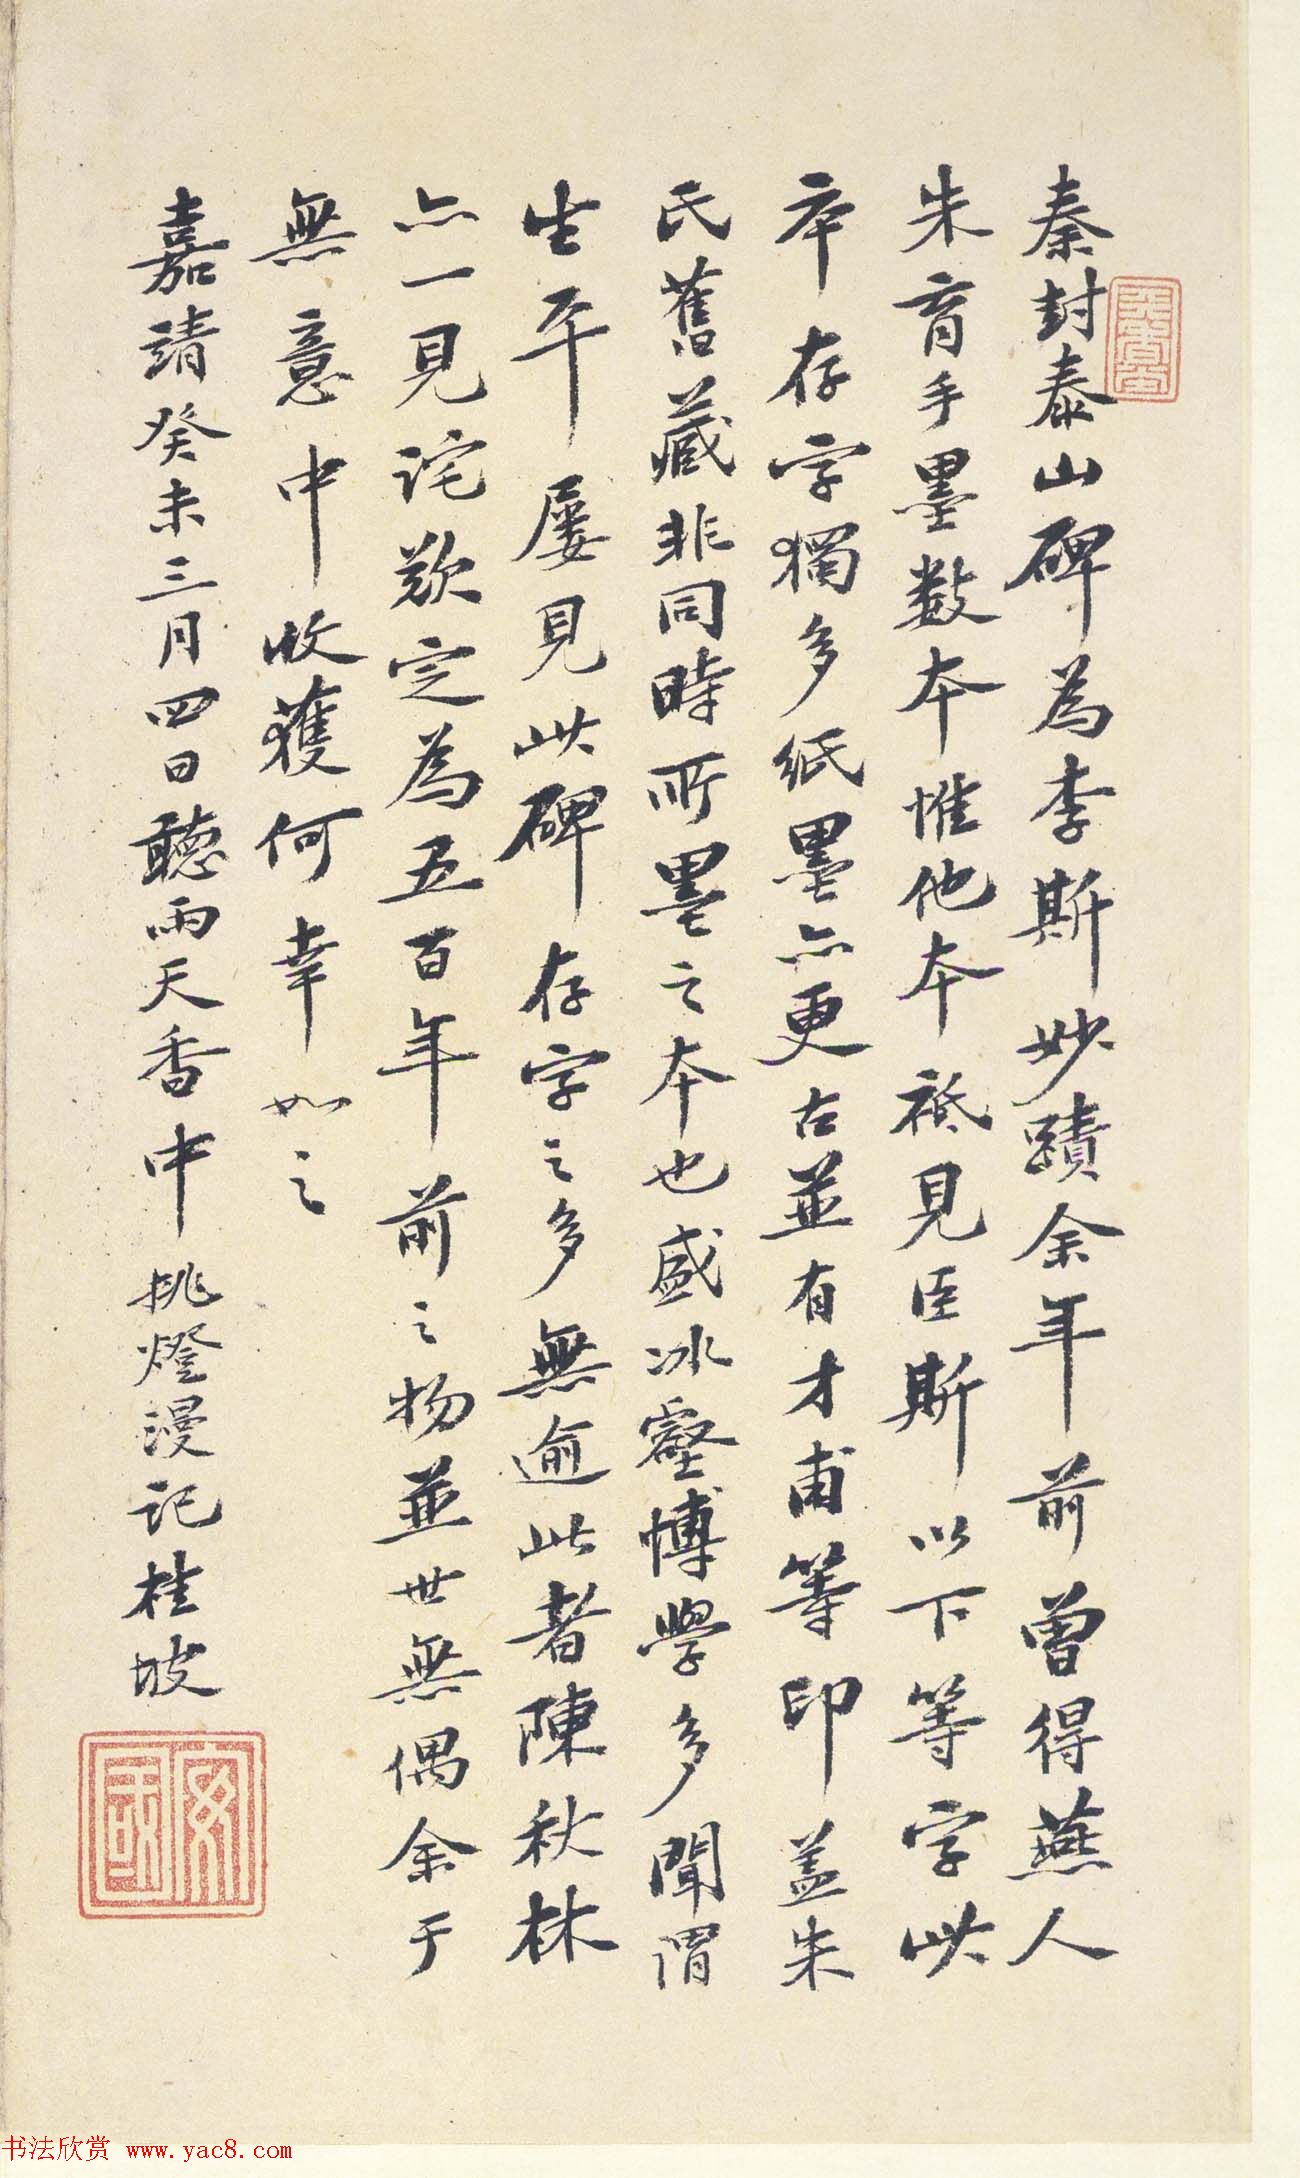 秦封泰山碑為李斯妙蹟余年前曾得燕人
朱育手墨数本惟他本祇見臣斯以下等字此
本存字獨多紙墨亦更古並有才甫等印盖朱
氏舊藏非同時所墨之本也盛冰壑博學多聞謂
生平屢見此碑存字之多無逾此者陳秋林
亦一見詫欵定為五百年前之物並世無偶余于
無意中收獲何幸如之
嘉靖癸未三月四日聽雨天香中挑燈漫記桂坡
安國
书法欣赏 www.yac8.com